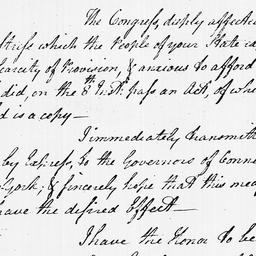 The Congress, deeply affected
stress which the People of your State ca
carcity of Provision, & anxious to afford
did, on the 8th Inst. pass an Act, of whi
d is a copy—
I immediately transmitt
by Express, to the Governors of Conne
York; & sincerely hope that this mea
have the desired Effect—
I have the Honor to be